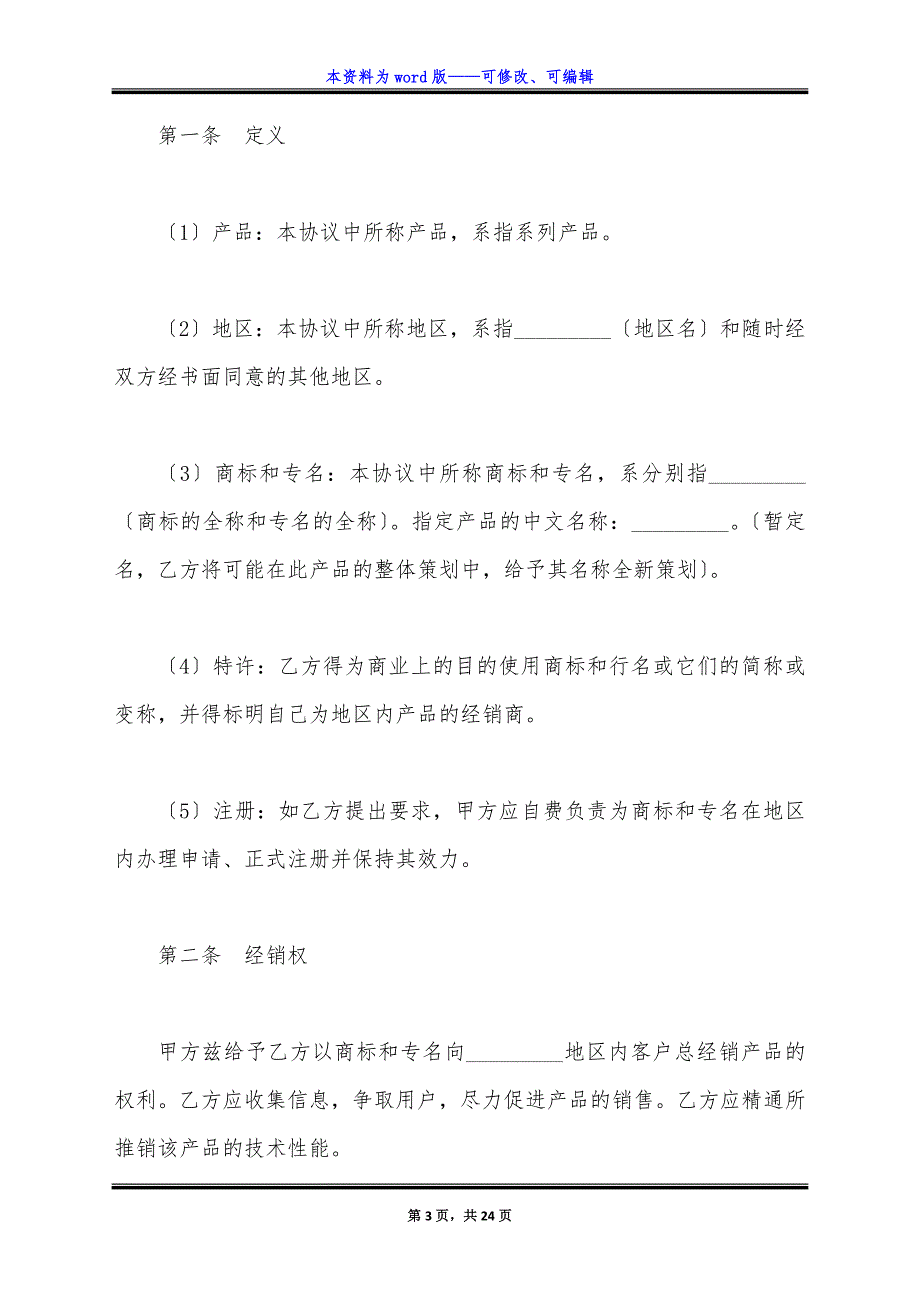 本资料为 word 版——可修改、可编辑
第一条　定义
〔1〕产品：本协议中所称产品，系指系列产品。
〔2〕地区：本协议中所称地区，系指_________〔地区名〕和随时经
双方经书面同意的其他地区。
〔3〕商标和专名：本协议中所称商标和专名，系分别指_________
〔商标的全称和专名的全称〕。指定产品的中文名称：_________。〔暂定
名，乙方将可能在此产品的整体策划中，给予其名称全新策划〕。
〔4〕特许：乙方得为商业上的目的使用商标和行名或它们的简称或
变称，并得标明自己为地区内产品的经销商。
〔5〕注册：如乙方提出要求，甲方应自费负责为商标和专名在地区
内办理申请、正式注册并保持其效力。
第二条　经销权
甲方兹给予乙方以商标和专名向_________地区内客户总经销产品的
权利。乙方应收集信息，争取用户，尽力促进产品的销售。乙方应精通所
推销该产品的技术性能。
第 3 页，共 24 页